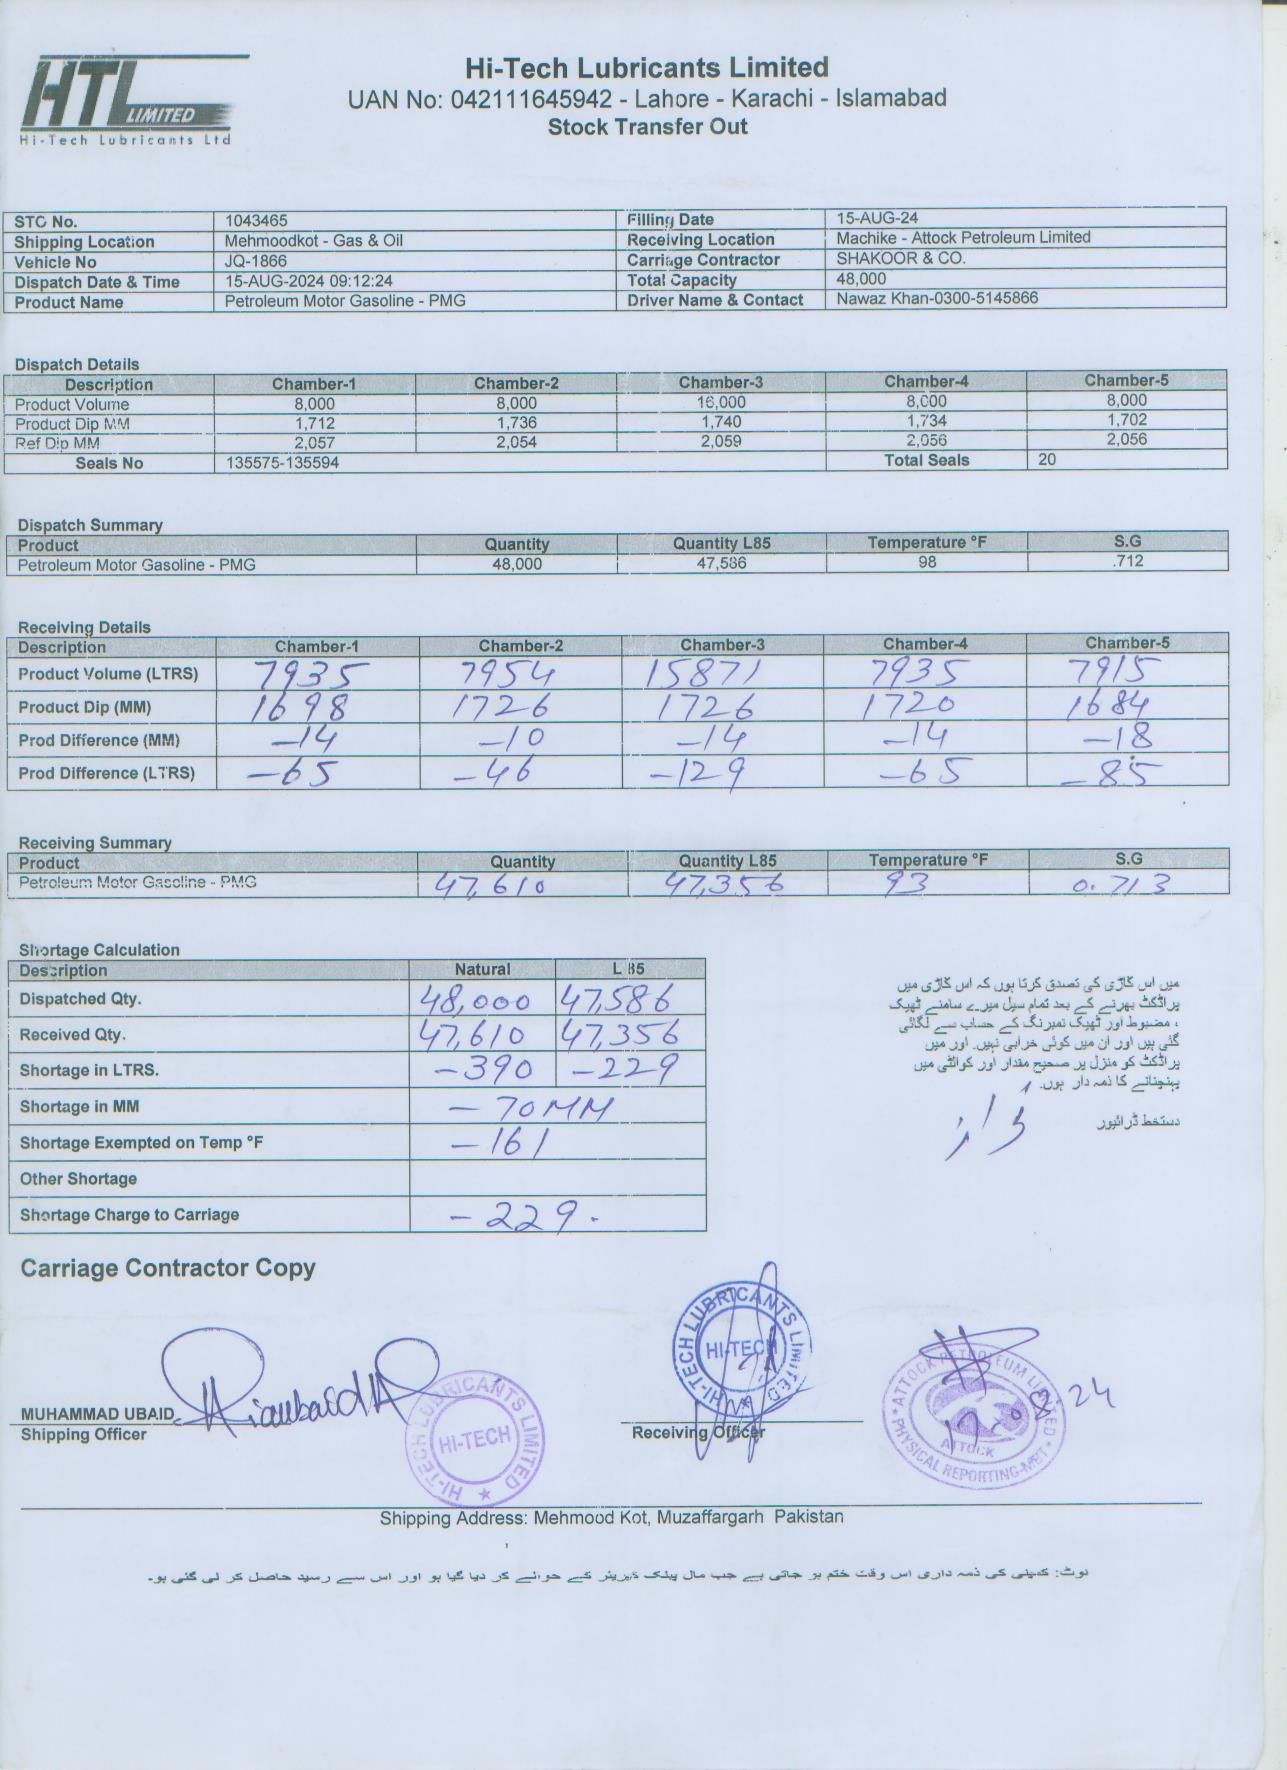 HTL LIMITED
Hi-Tech Lubricants Ltd
Hi-Tech Lubricants Limited
UAN No: 042111645942 - Lahore - Karachi - Islamabad
Stock Transfer Out
STO No. 1043465 Filling Date 15-AUG-24
Shipping Location Mehmoodkot - Gas & Oil Receiving Location Machike - Attock Petroleum Limited
Vehicle No JQ-1866 Carriage Contractor SHAKOOR & CO.
Dispatch Date & Time 15-AUG-2024 09:12:24 Total Capacity 48,000
Product Name Petroleum Motor Gasoline - PMG Driver Name & Contact Nawaz Khan-0300-5145866
Dispatch Details
Description Chamber-1 Chamber-2 Chamber-3 Chamber-4 Chamber-5
Product Volume 8,000 8,000 16,000 8,000 8,000
Product Dip MM 1,712 1,736 1,740 1,734 1,702
Ref Dip MM 2,057 2,054 2,059 2,056 2,056
Seals No 135575-135594 Total Seals 20
Dispatch Summary
Product Quantity Quantity L85 Temperature °F S.G
Petroleum Motor Gasoline - PMG 48,000 47,586 98 .712
Receiving Details
Description Chamber-1 Chamber-2 Chamber-3 Chamber-4 Chamber-5
Product Volume (LTRS) 7935 7954 15871 7935 7915
Product Dip (MM) 1698 1726 1726 1720 1684
Prod Difference (MM) -14 -10 -14 -14 -18
Prod Difference (LTRS) -65 -46 -129 -65 -85
Receiving Summary
Product Quantity Quantity L85 Temperature °F S.G
Petroleum Motor Gasoline - PMG 47,610 47,356 93 0.713
Shortage Calculation
Description Natural L 85
Dispatched Qty. 48,000 47,586
Received Qty. 47,610 47,356
Shortage in LTRS. -390 -229
Shortage in MM -70MM
Shortage Exempted on Temp °F -161
Other Shortage
Shortage Charge to Carriage -229.
میں اس گاڑی کی تصدق کرتا ہوں کہ اس گاڑی میں
پراڈکٹ بھرنے کے بعد تمام سیل میرے سامنے ٹھیک
، مضبوط اور ٹھیک نمبرنگ کے حساب سے لگائی
گئی ہیں اور ان میں کوئی خرابی نہیں۔ اور میں
پراڈکٹ کو منزل پر صحیح مقدار اور کوالٹی میں
پہنچانے کا ذمہ دار ہوں۔
دستخط ڈرائیور
Carriage Contractor Copy
MUHAMMAD UBAID
Shipping Officer
HI-TECH LUBRICANTS LIMITED
HI-TECH
HI-TECH LUBRICANTS LIMITED
HI-TECH
Receiving Officer
ATTOCK PETROLEUM LIMITED
ATTOCK
PHYSICAL REPORTING-MBT
17-08-24
Shipping Address: Mehmood Kot, Muzaffargarh Pakistan
نوٹ: کمپنی کی ذمہ داری اس وقت ختم ہو جاتی ہے جب مال پبلک کیریئر کے حوالے کر دیا گیا ہو اور اس سے رسید حاصل کر لی گئی ہو۔